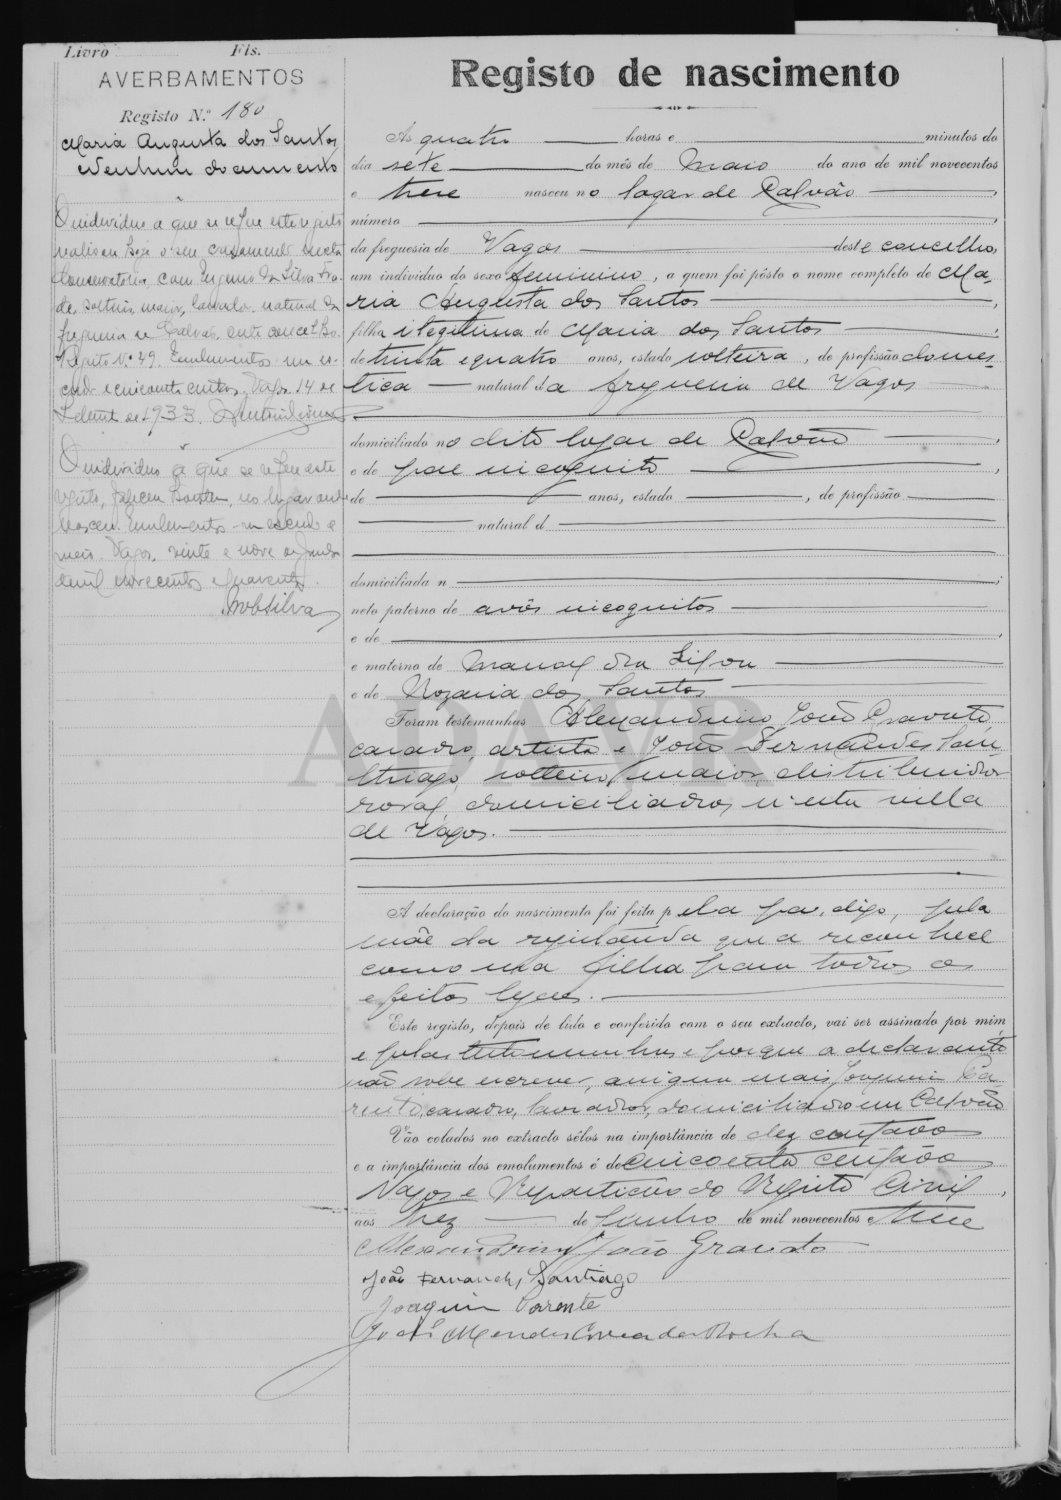 Livro Fls.
AVERBAMENTOS
Registo N.º 180
Maria Augusta dos Santos
Nenhum documento
O individuo a que se refere este registo
realisou hoje o seu casamento nesta
Conservatória, com da Silva
de, solteiro, maior, lavrador, natural da
freguesia de Calvão, este concelho.
Registo N.º 49. Emolumentos um es-
cudo e cincoenta centavos. Vagos, 14 de
de 1933.
O individuo a que se refere este
registo, faleceu hontem, no lugar onde
nasceu. Emolumentos um escudo e
meio. Vagos, vinte e nove de
de mil novecentos e quarenta.
Silva
Registo de nascimento
Ás quatro horas e minutos do
dia sete do mês de Maio do ano de mil novecentos
e treze nasceu no logar de Calvão
número
da freguesia de Vagos deste concelho,
um individuo do sexo feminino, a quem foi pôsto o nome completo de Ma-
ria Augusta dos Santos
filha ilegitima de Maria dos Santos
de trinta e quatro anos, estado solteira, de profissão domes-
tica natural da freguesia de Vagos
domiciliado no dito logar de Calvão
e de pae incognito
de anos, estado , de profissão
natural d
domiciliada n
neto paterno de avós incognitos
e de
e materno de Manoel da Silva
e de Rozaria dos Santos
Foram testemunhas Alexandrino João Gravato,
casado, artista e João Fernandes San-
thiago, solteiro, maior, distribuidor
rural, domiciliados n'esta villa
de Vagos.
A declaração do nascimento foi feita pela pa, digo, pela
mãe da registanda que a reconhece
como sua filha para todos os
efeitos legaes.
Este registo, depois de lido e conferido com o seu extracto, vai ser assinado por mim,
e pelas testemunhas e porque a declarante
não sabe escrever, assigna mais Joaquim Pa-
rente, casado, lavrador, domiciliado em Calvão
Vão colados no extracto sêlos na importância de dez centavos
e a importância dos emolumentos é de cincoenta centavos
Vagos e Repartição do Registo Civil,
aos trez de Junho de mil novecentos e treze
Alexandrino João Gravato
João Fernandes Santiago
Joaquim Parente
José Mendes Correa da Rocha
ADAVR